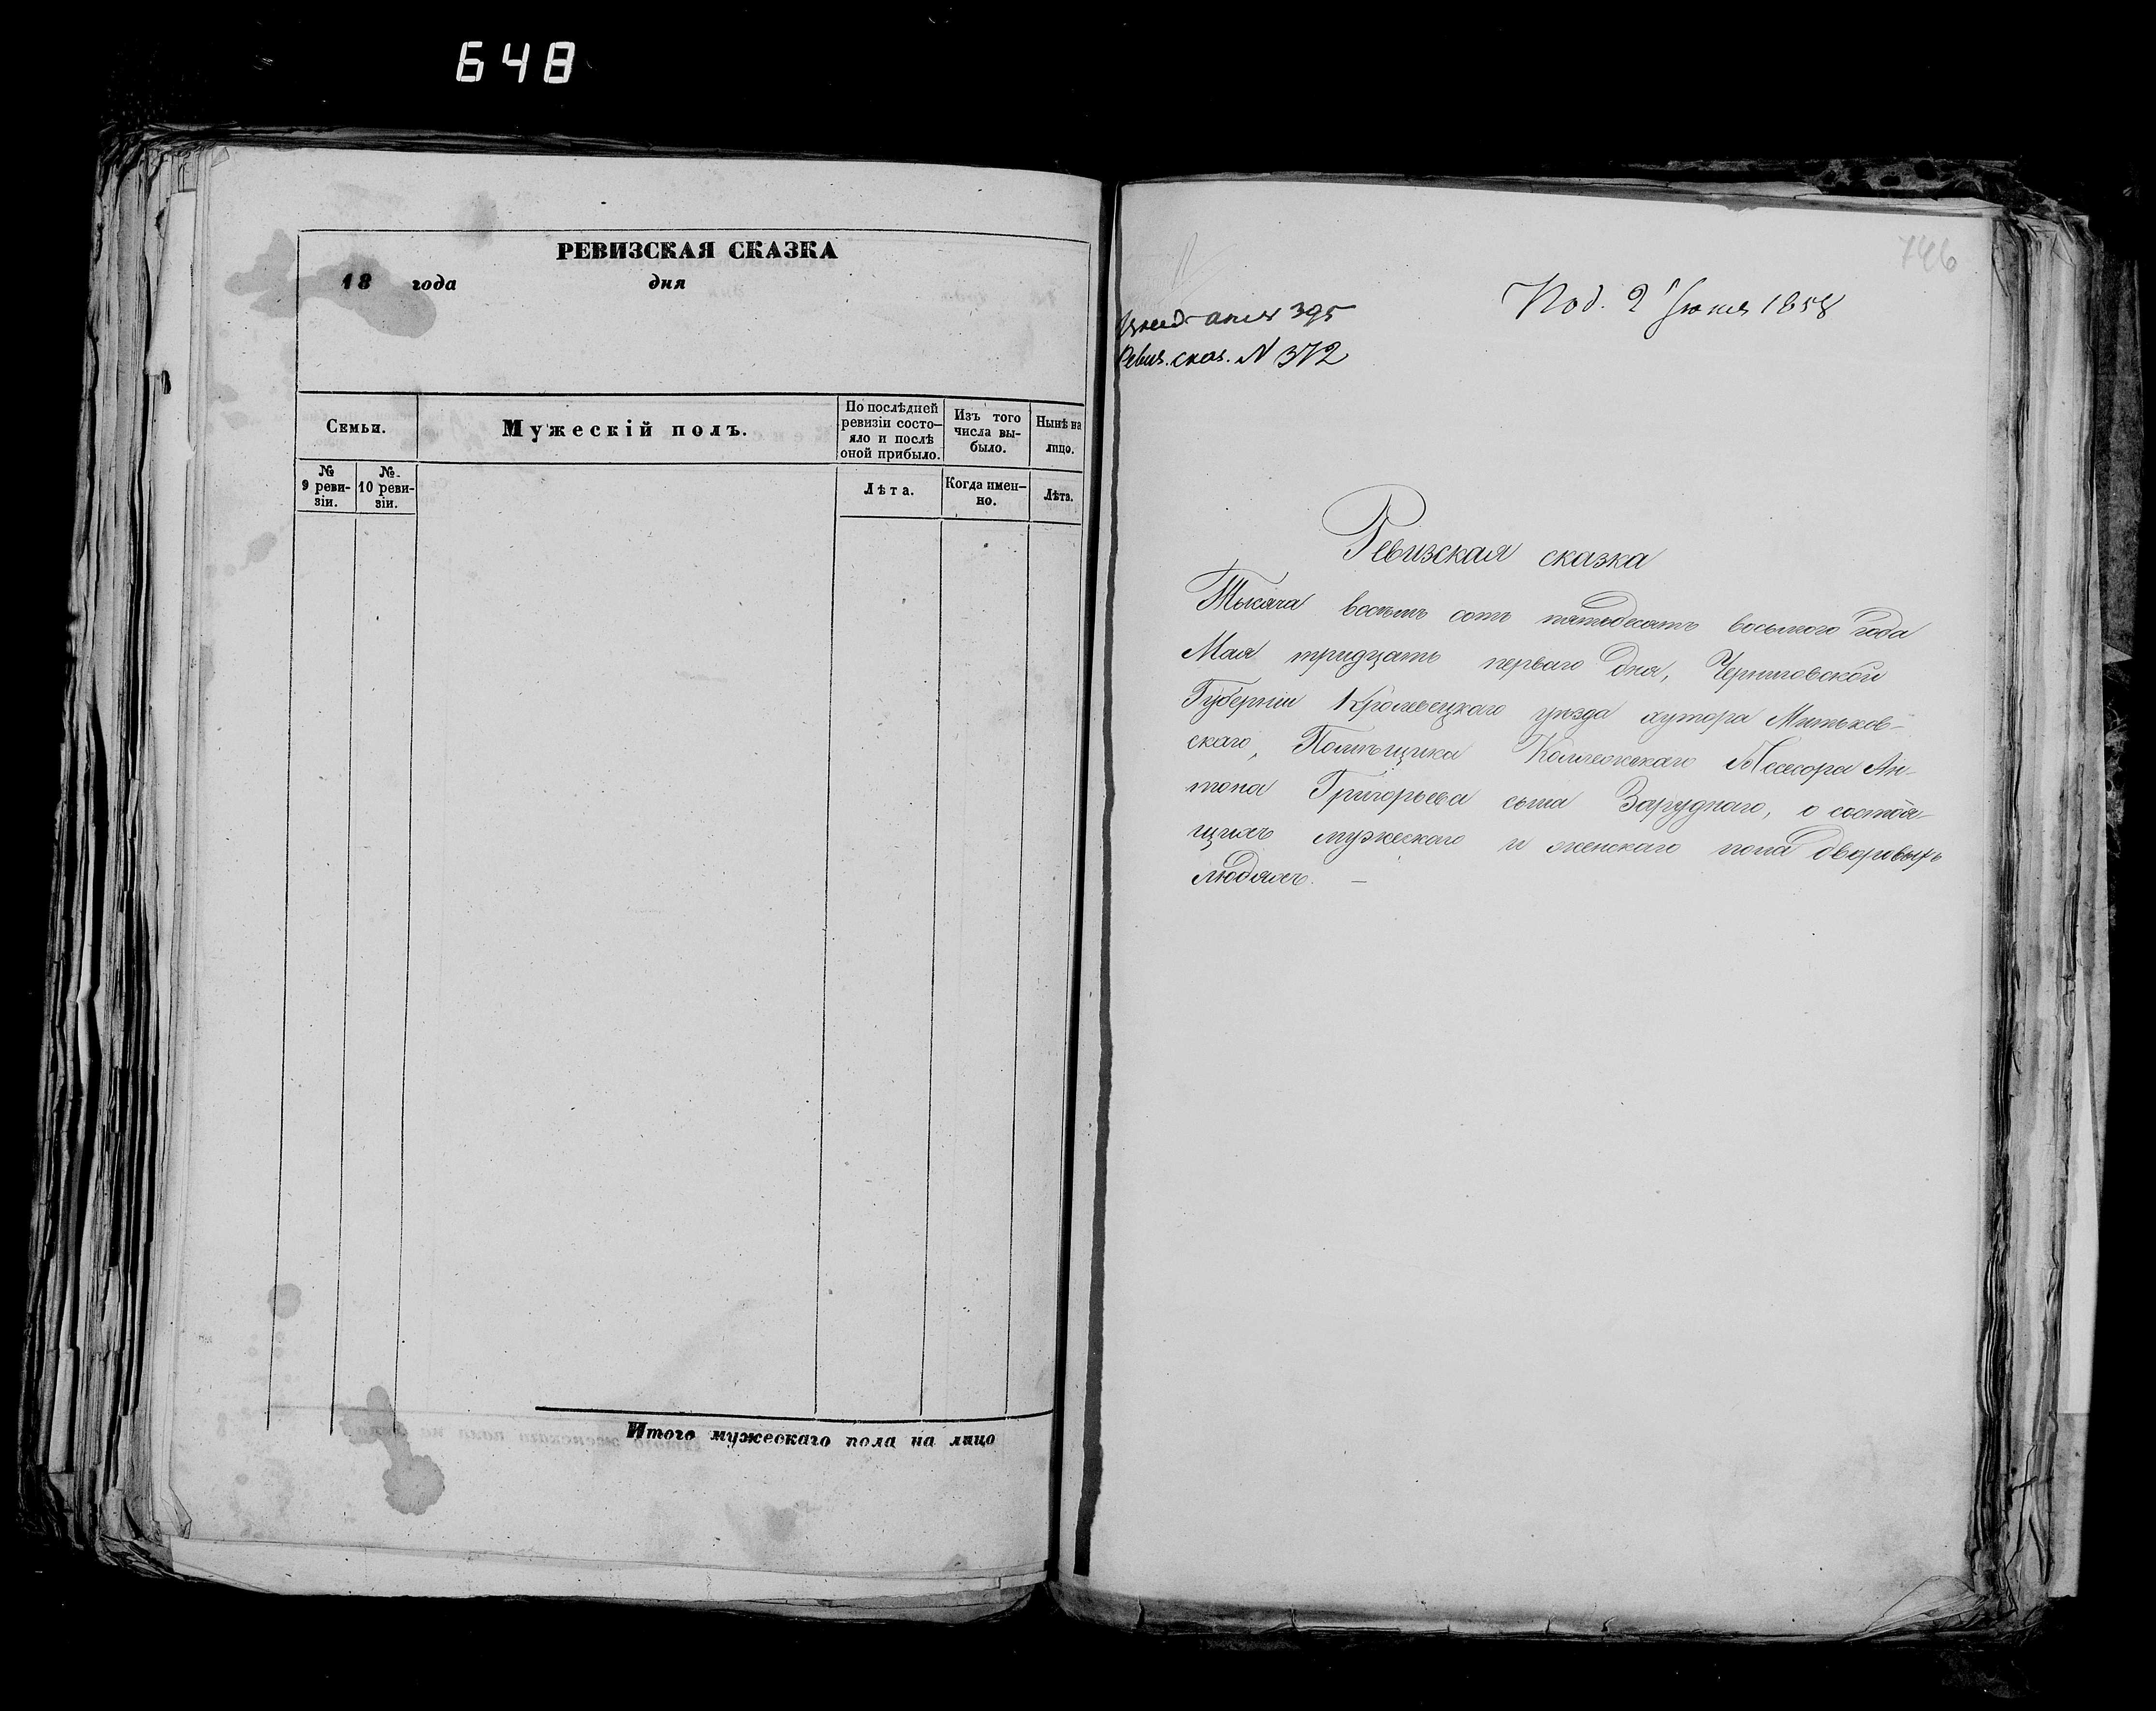 648
РЕВИЗСКАЯ СКАЗКА
18 года дня
Семьи.
Мужескій полъ.
По послѣдней ревизіи состо-
яло и послѣ
оной прибыло.
Изъ того
числа вы-
было.
Нынѣ на
лицо.
№ 9 реви-
зіи.
№ 10 реви-
зіи.
Лѣта.
Когда имен-
но.
Лѣта.
Итого мужескаго пола на лицо
746
Под. 2 Іюня 1858
395
Ревиз. сказ. N 372
Ревизская сказка
Тысяча восемь сотъ пятьдесятъ восьмого года
Мая тридцать перваго дня, Черниговской
Губерніи Кролевецкаго уезда хутора Митьков-
скаго, Помѣщика Коллежскаго Ассесора Ан-
тона Григорьева сына Заруднаго, о состоя-
щихъ мужескаго и женскаго пола дворовыхъ
людяхъ. —